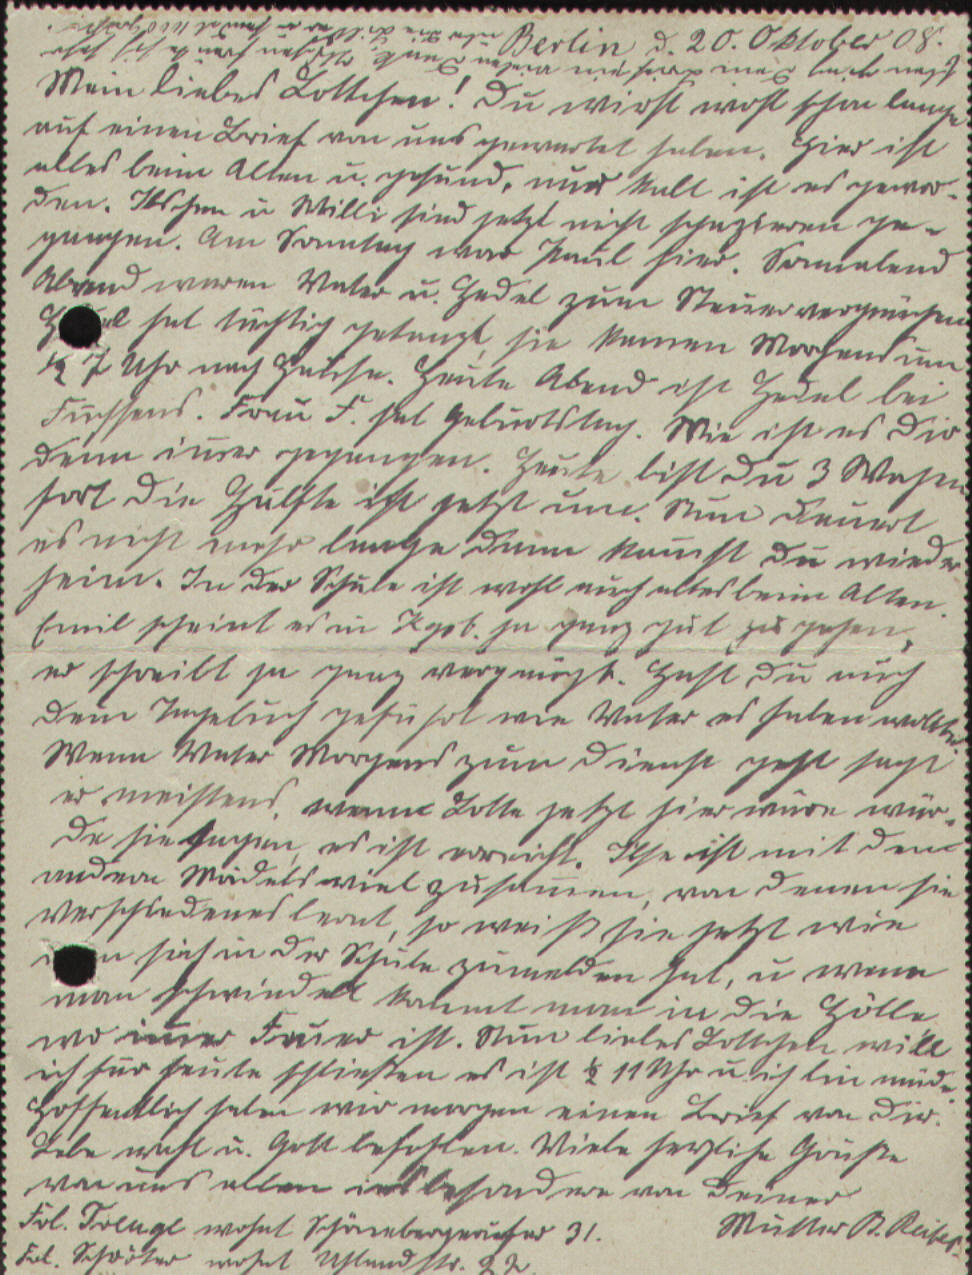 Berlin d. 20. Oktober 08.
Mein liebes Lottchen! Du wirst wohl schon lange
auf einen Brief von uns gewartet haben. Hier ist
alles beim Alten u. gesund, nur kalt ist es gewor-
den. Ilschen u Willi sind jetzt nicht spazieren ge-
gangen. Am Sonntag war Paul hier. Sonnabend
Abend waren Vater u. Hedel zum Steuervergnügen
hat tüchtig getanzt, sie kamen Morgens um
½ 7 Uhr nach Hause. Heute Abend ist Hedel bei
Frau F. hat Geburtstag. Wie ist es Dir
denn immer gegangen. Heute bist Du 3 Wochen
fort die Hälfte ist jetzt um. Nun dauert
es nicht mehr lange dann kommst Du wieder
heim. In der Schule ist wohl auch alles beim Alten.
Emil scheint es in Kgsb. ja ganz gut zu gehen,
er schreibt ja ganz vergnügt. Hast Du auch
Dein Tagebuch geführt wie Vater es haben wollte.
Wenn Vater Morgens zum Dienst geht sagt
er meistens, wenn Lotte jetzt hier wäre wür-
de sie sagen, es ist erreicht. Ilse ist mit den
andern Mädels viel zusammen, von denen sie
verschiedenes lernt, so weiß sie jetzt wie
sich in der Schule zumelden hat, u wenn
man schwindelt kommt man in die Hölle
wo immer Feuer ist. Nun liebes Lottchen will
ich für heute schließen es ist ½ 11 Uhr u. ich bin müde.
Hoffentlich haben wir morgen einen Brief von Dir.
Lebe wohl u. Gott befohlen. Viele herzliche Grüße
von uns allen insbesondere von Deiner
Mutter
Frl. wohnt Schönebergerufer 31.
Frl. Schröter wohnt Uhlandstr.